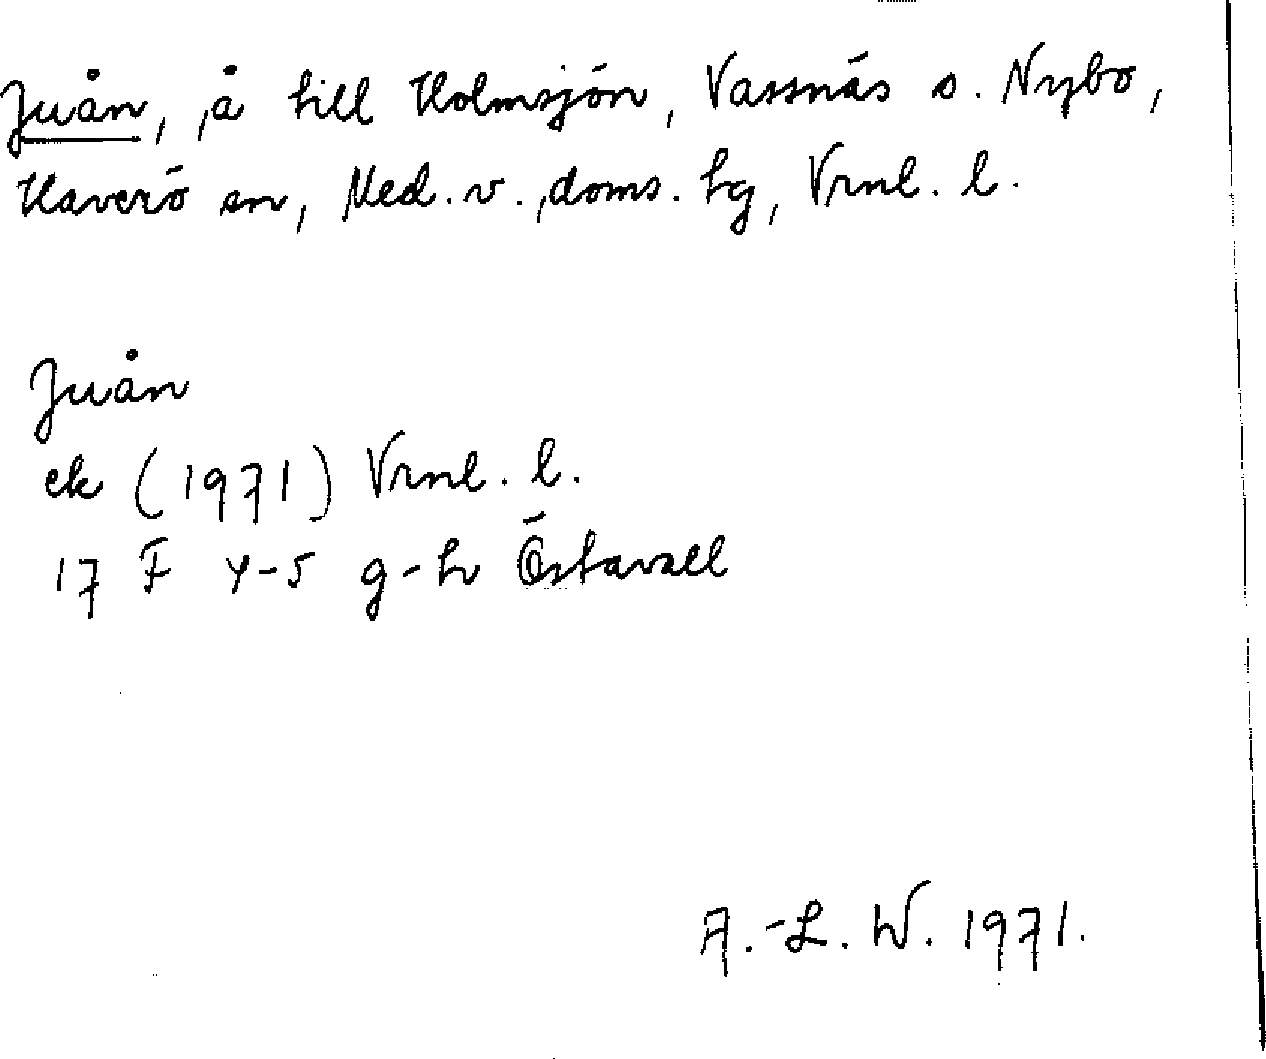 Juån, å till Holmsjön, Vassnäs s. Nybo,
Haverö sn, Med. v. doms. tg, Vrnl. l.
Juån
ek (1971) Vrnl. l.
17 F 4-5 g-h Östavall
A.-L. W. 1971.